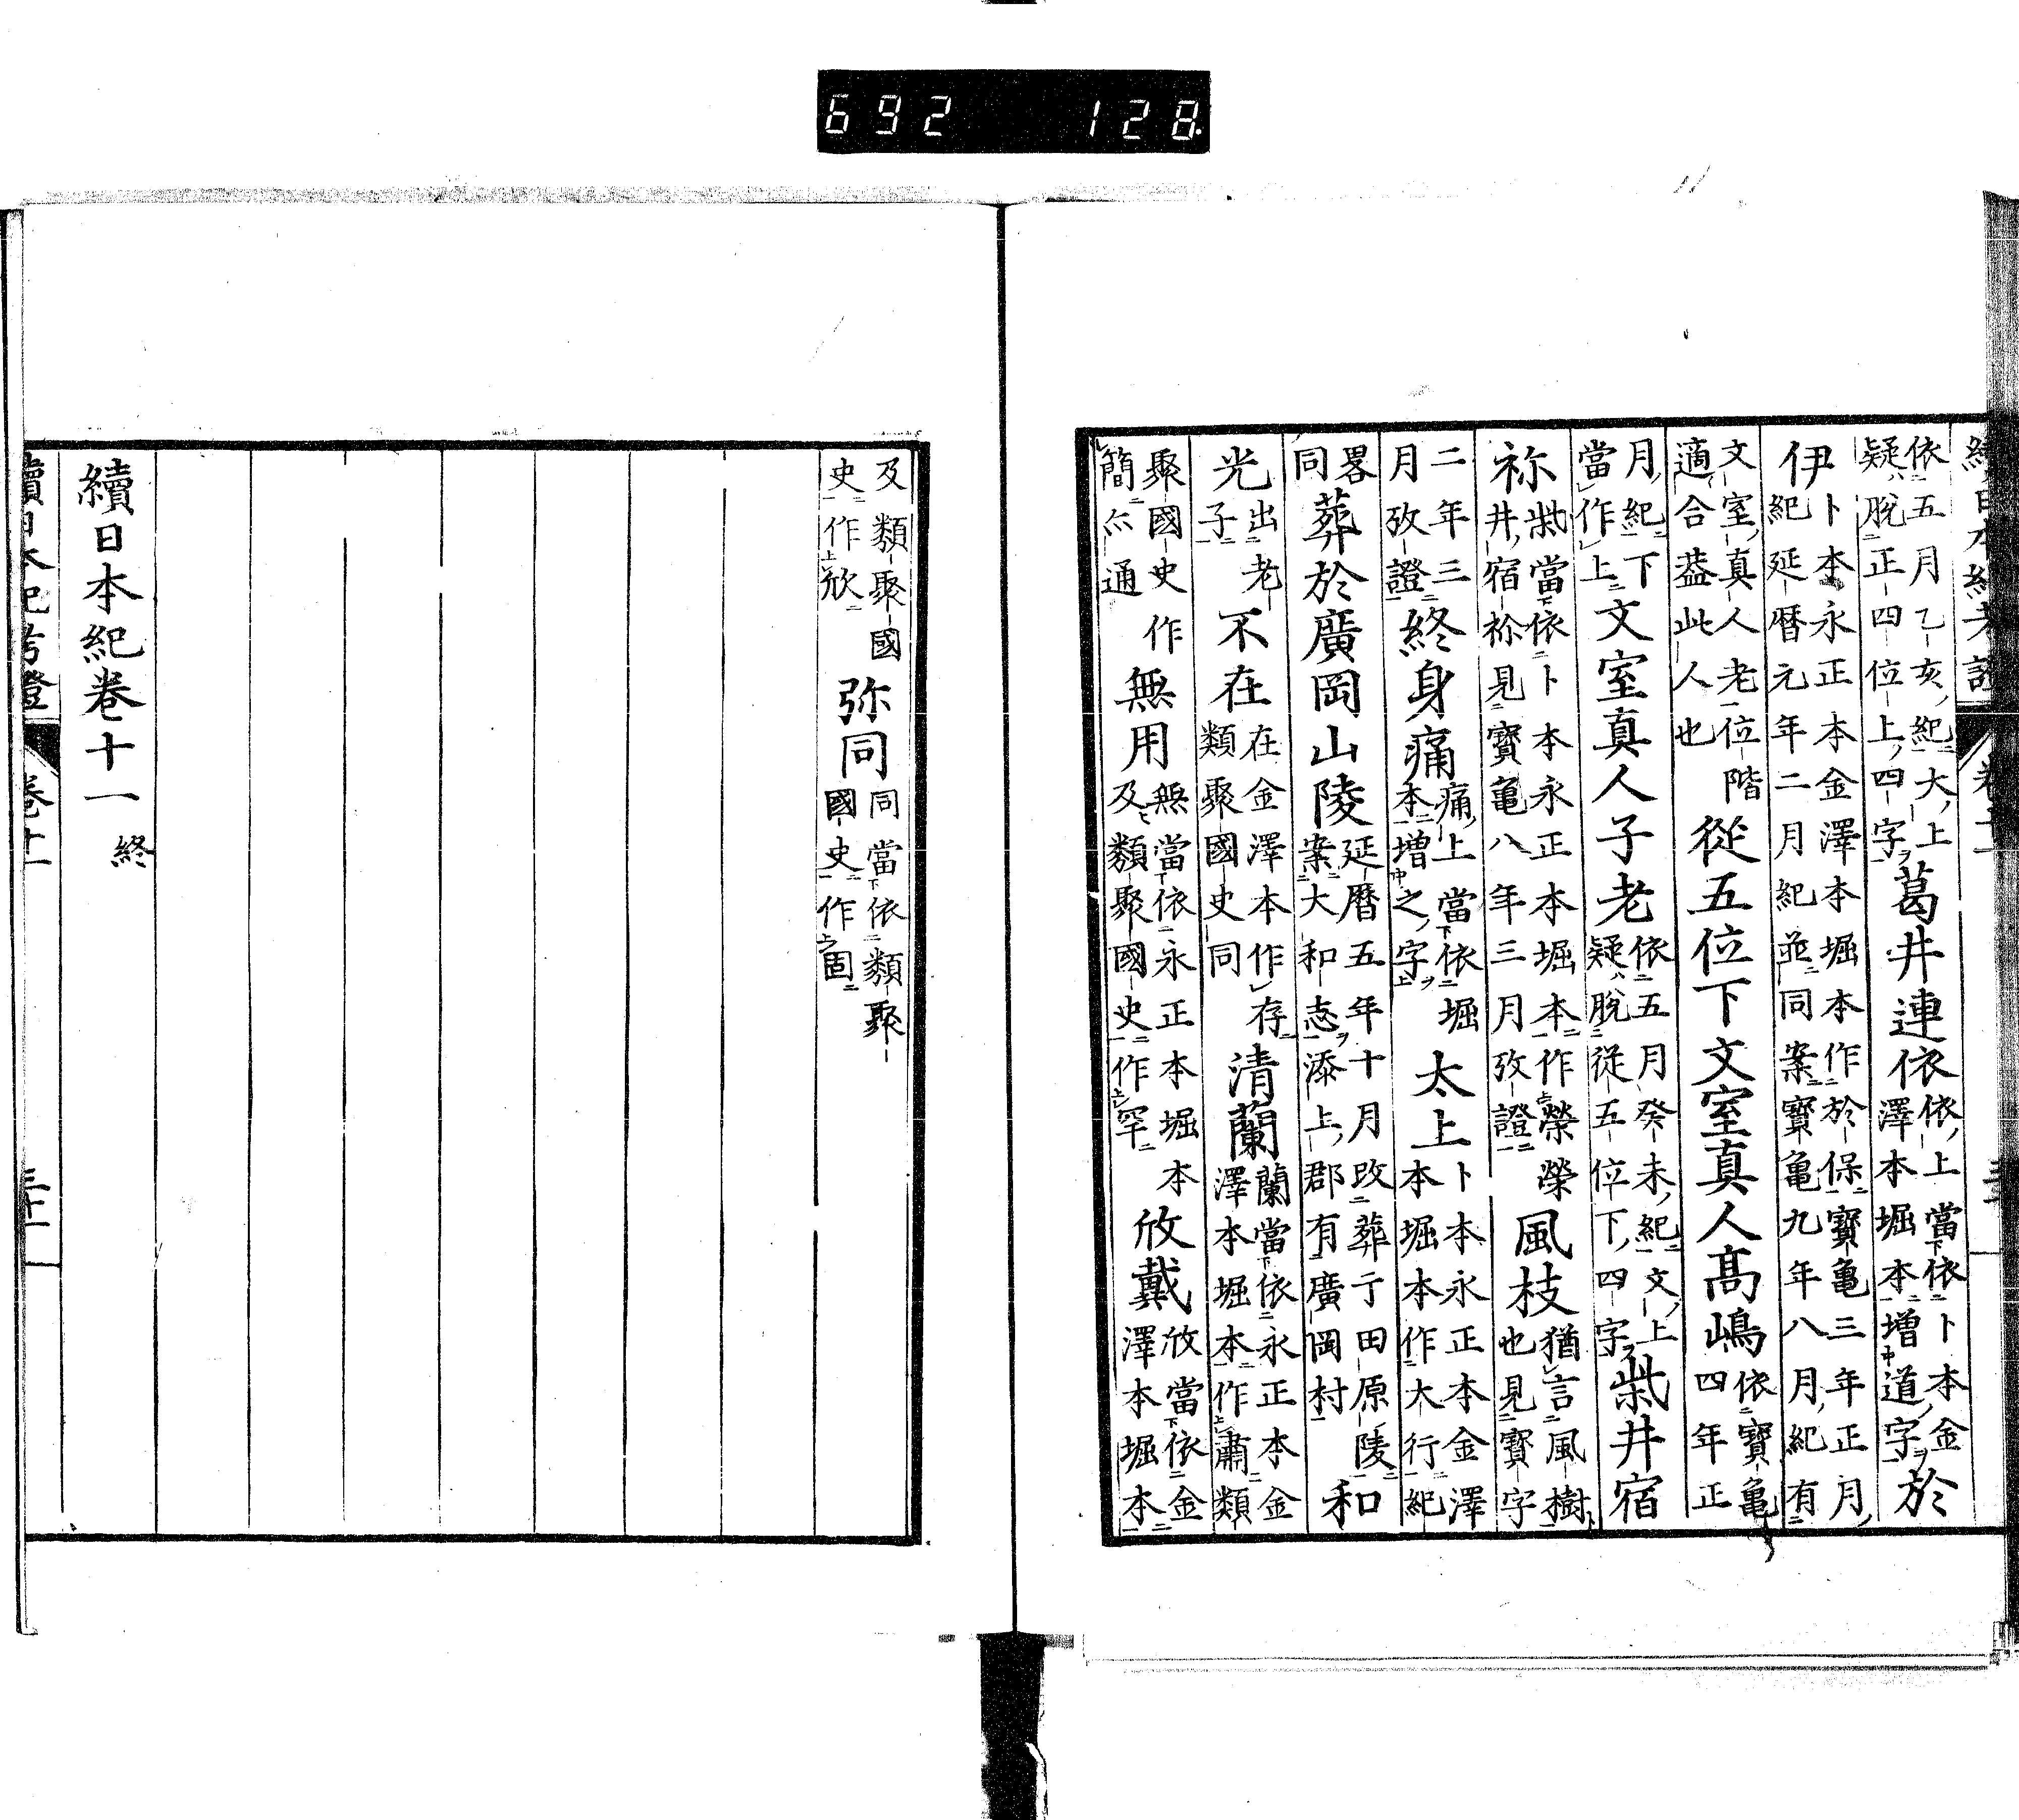 692 128
依五月乙亥紀大上
疑脱正四位上四字葛井連依依上當依卜本金
澤本堀本增道字於
伊卜本永正本金澤本堀本作於保寶龜三年正月
紀延暦元年二月紀並同案寶亀九年八月紀有
文室真人老位階
適合葢此人也從五位下文室真人髙嶋依寶龜
四年正
月紀下
當作上文室真人子老依五月癸未紀文上
疑脱從五位下四字柴井宿
祢柴當依卜本永正本堀本作榮榮
井宿祢見寶亀八年三月攷證風枝猶言風樹
也見寶字
二年三
月攷證終身痛痛上當依堀
本增之字太上卜本永正本金澤
本堀本作大行紀
畧
同葬於廣岡山陵延暦五年十月改葬于田原陵
案大和志添上郡有廣岡村和
光出老
子不在在金澤本作存
類聚國史同清蘭蘭當依永正本金
澤本堀本作肅類
聚國史作
簡亦通無用無當依永正本堀本
及類聚國史作罕攸戴攸當依金
澤本堀本
及類聚國
史作欣弥同同當依類聚
國史作固
續日本紀卷十一終
續日本紀考證 卷十一 三十一